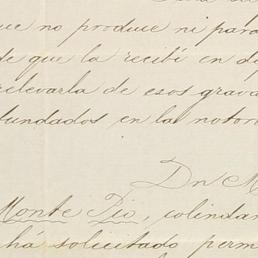 ue no produce ni para
te que la recibí en di
relevarla de esos grava
fundados, en la notor
Dn M
Monte Pio, colindan
há solicitado perm